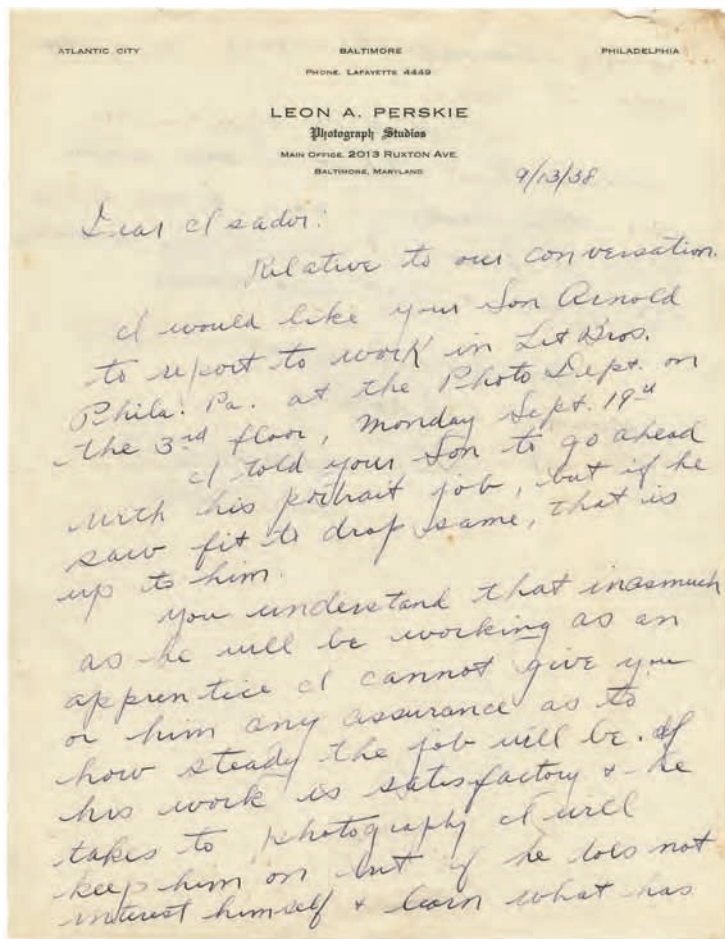 ATLANTIC CITY BALTIMORE PHILADELPHIA
PHONE, LAFAYETTE 4449
LEON A. PERSKIE
Photograph Studios
MAIN OFFICE, 2013 RUXTON AVE.
BALTIMORE, MARYLAND
9/13/38
Dear Isador:
Relative to our conversation.
I would like your Son Arnold
to report to work in Lit Bros.
Phila. Pa. at the Photo Dept. on
the 3rd floor, Monday Sept. 19th
I told your Son to go ahead
with his portrait job, but if he
saw fit to drop same, that is
up to him.
You understand that inasmuch
as he will be working as an
apprentice I cannot give you
or him any assurance as to
how steady the job will be. If
his work is satisfactory & he
takes to photography I will
keep him on but if he does not
interest himself & learn what has